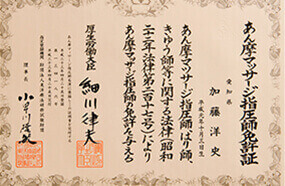 あん摩マッサージ指圧師免許証
愛知県
加藤洋史
平成元年十月三日生
あん摩マッサージ指圧師、はり師、
きゅう師等に関する法律(昭和
二十二年法律第二百十七号)により
あん摩マッサージ指圧師の免許を与える
厚生労働大臣 細川律夫
理事長